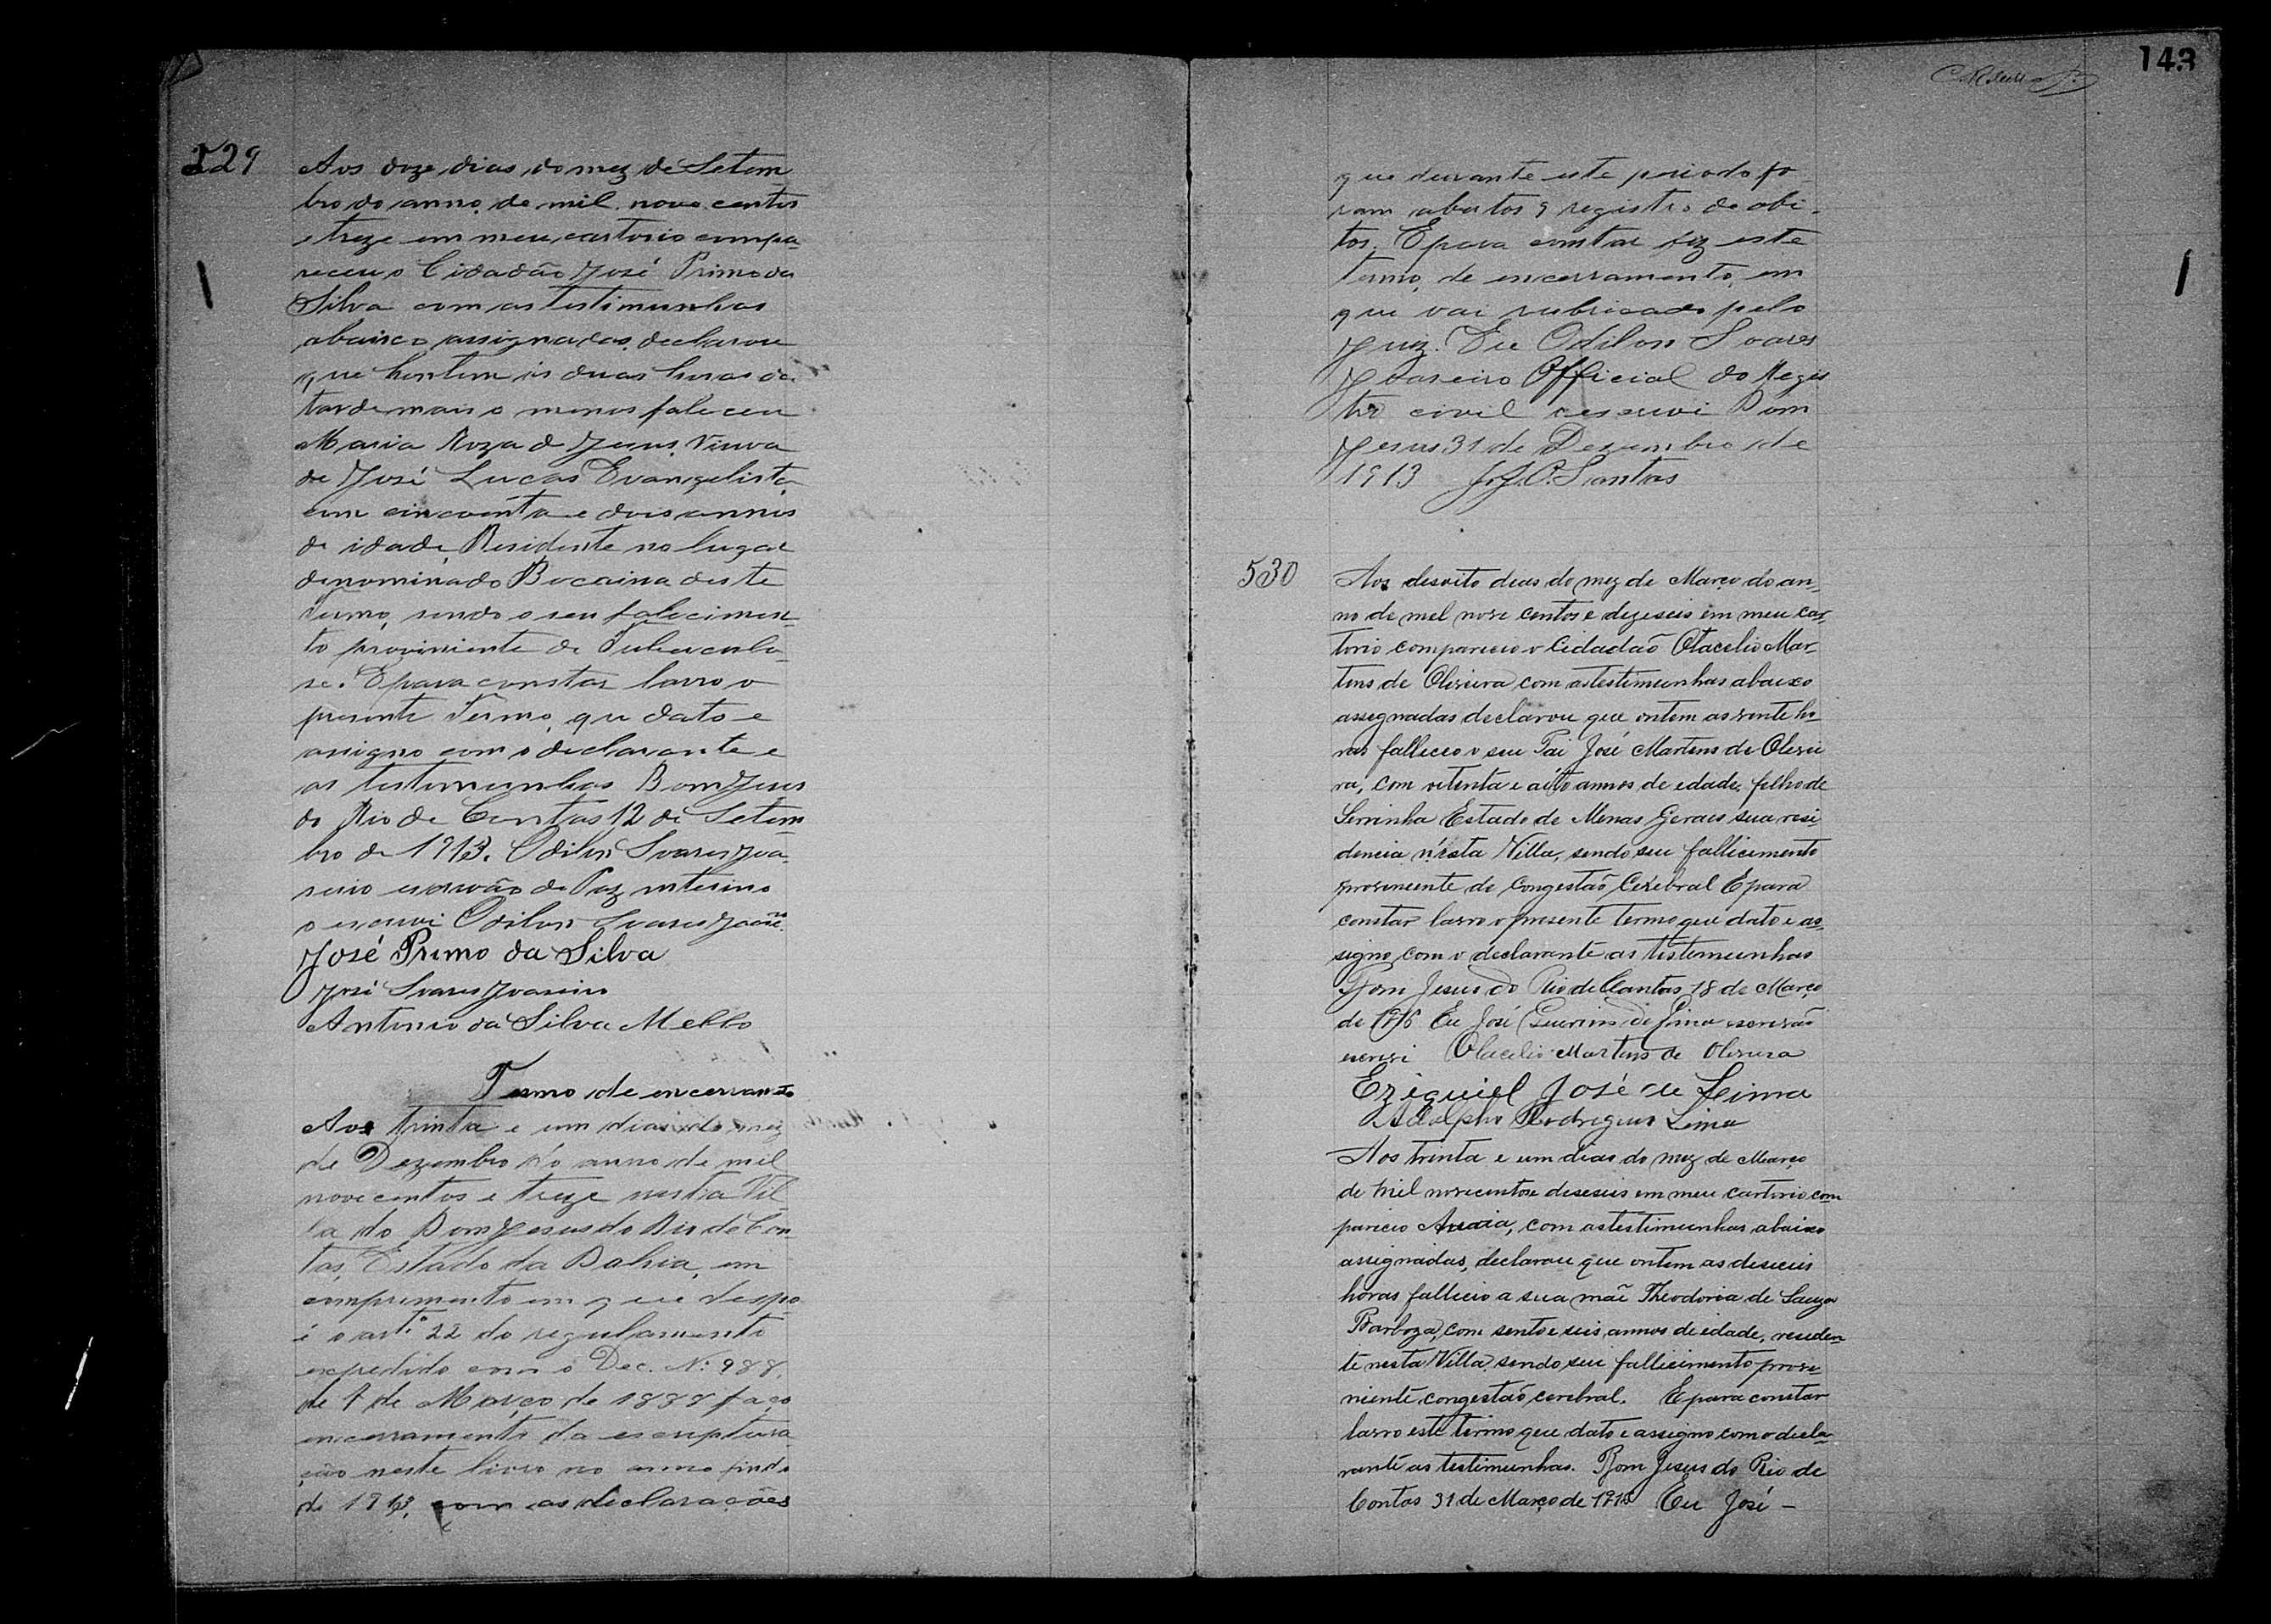 529
Aos doze dias do mez de Setem
bro do anno de mil nove centos
e treze em meu cartorio compa
receu o Cidadão José Primo da
Silva com as testimunhas
abaixo assignadas, declarou
que hontem ás duas horas da
tarde mais o menos faleceu
Maria Roza de Jesus, Viuva
de José Lucas Evangelista,
com cincoenta e dois annos
de idade, Residente no lugar
denominado Bocaina deste
Termo, sendo o seu falecimen
to proviniente de Tuberculo
se. E para constar lavro o
presente Termo, que dato e
assigno com o declarante e
as testemunhas Bom Jesus
do Rio de Contas 12 de Setem
bro de 1913. Odilon Soares Joa
neiro escrivão de Paz interino
o escrevi Odilon Soares
José Primo da Silva
José Soares Joaneiro
Antonio da Silva Mello
Termo de encerramto
Aos trinta e um dias do mez
de Dezembro do anno de mil
nove centos e treze nesta Vil
la do Bom Jesus do Rio de Con
tas, Estado da Bahia, em
comprimento em que despo
é o arto 22 do regulamento
expedido com o Dec. N: 988,
de 7 de Março de 1888 faço
encerramento da escriptura
ção neste livro no anno findo
de 1913, com as declarações
143
que durante este periodo fo
ram abertos 9 registro de obi-
tos. E para constar fiz este
termo, de encerramento, em
que vai rubricado pelo
Juiz. Eu Odilon Soares
Joaneiro Official do Regis
tro civil o escrevi Bom
Jesus 31 de Dezembro de
1913 J. J. C. Santos
530
Aos desoito dias do mez de Março do an-
no de mel nove centos e dezeseis em meu car-
torio compareceo o Cidadaõ Otacelio Mar-
tens de Oliveira com as testemunhas abaixo
assegnadas declarou que ontem as vente ho-
ras falleceo o seu Pai José Martens de Olevei
ra, com oitenta e oito annos de edade, felho de
Serrinha Estado de Menas Geraes sua resi
dencia n'esta Villa, sendo seu fallecemento
proveneente de Congestaõ Cerebral E para
constar lavro o presente termo que dato e as-
signo, com o declarante as testemunhas
Bom Jesus do Rio de Contas 18 de Março
de 1916 Eu José Guerino de Lima escrevaõ
escrevi Otacelio Martens de Oliveira
Ezequiel José de Lima
Adolpho Rodrigues Lima
Aos trinta e um dias do mez de Março
de mil novecentos e deseseis em meu cartorio com
pareceo, com as testimunhas abaixo
assignadas, declarou que ontem as deseseis
horas falleceo a sua mãe Theodoria de Souza
Barboza, com sento e seis annos de edade, residen
te nesta Villa, sendo seu fallecimento prove
niente congestaõ cerebral. E para constar
lavro este termo que dato e assigno com o decla-
rante as testimunhas. Bom Jesus do Rio de
Contas 31 de Março de 1916 Eu José -